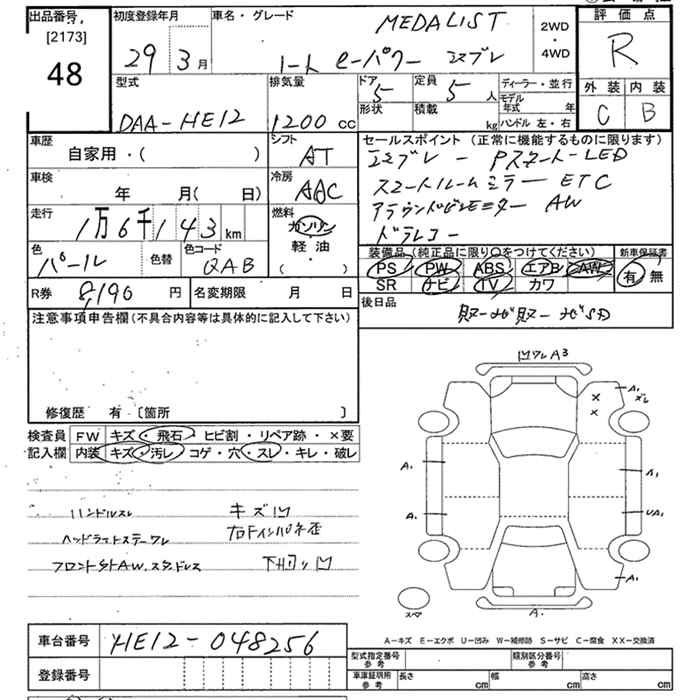 出品番号 初度登録年月 車名・グレード MEDALIST 2WD・4WD 評価点
[2173] 48 29年 3月 ノート e-パワー エマブレ R
型式 排気量 ドア 5 定員 5 人 ディーラー・並行 外装 内装
DAA-HE12 1200 cc 形状 積載 kg モデル年式 年 ハンドル 左・右 C B
車歴 シフト セールスポイント (正常に機能するものに限ります)
自家用・( ) AT エマブレ - Pスタート-LED
車検 冷房 スマートルームミラー ETC
年 月( 日) AAC アラウンドビューモニター AW
走行 燃料 ドラレコー
1万6千143km ガソリン
色 色替 色コード 軽油 装備品 (純正品に限り〇をつけてください) 新車保証書
パール QAB ・( ) PS PW ABS エアB AW 有 無
SR ナビ TV カワ
R券 8,190 円 名変期限 月 日 後日品
注意事項申告欄(不具合内容等は具体的に記入して下さい) 取-ナビ取-ナビSD
凹ワレA3
A1
ズレ
修復歴 有 [箇所 ]
検査員 FW キズ・飛石・ヒビ割・リペア跡・×要
記入欄 内装 キズ・汚レ・コゲ・穴・スレ・キレ・破レ
A. A1
ハンドルスレ キズ凹
ヘッドライトステーワレ 右Fインパネ歪
A. UA1
フロント外AW.スタッドレス 下廻り凹
A1
スペ A.
A-キズ E-エクボ U-凹み W-補修跡 S-サビ C-腐食 XX-交換済
車台番号 HE12-048256
型式指定番号 参考 類別区分番号 参考
登録番号 車庫証明所 参考 長さ cm 幅 cm 高さ cm